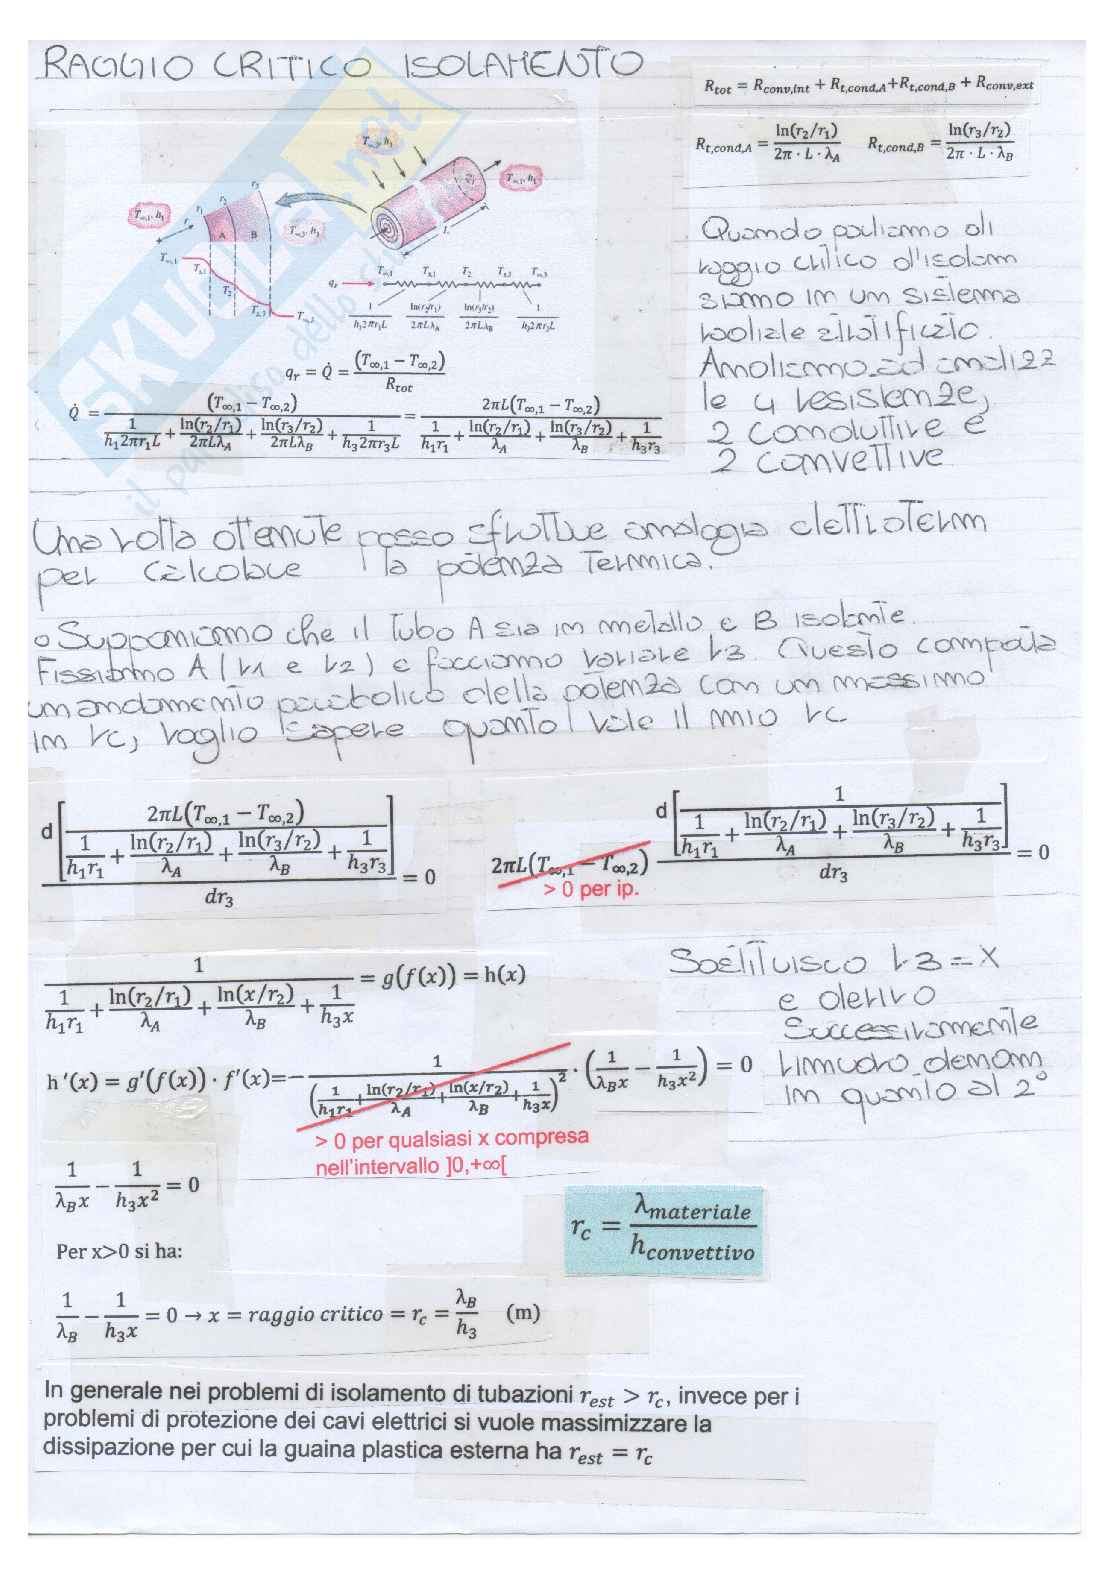 RAGGIO CRITICO ISOLAMENTO
R_tot = R_conv,int + R_t,cond,A + R_t,cond,B + R_conv,ext
R_t,cond,A = ln(r₂/r₁) / (2π · L · λ_A)   R_t,cond,B = ln(r₃/r₂) / (2π · L · λ_B)
SKUOLA.net
il paradiso dello
T∞,1, h₁
r₁ r₂ r₃
A B
T∞,3, h₃
L
T∞,1
T_s,1
T₂
T_s,3
T∞,3
q_r → T∞,1 T_s,1 T₂ T_s,3 T∞,3
1/(h₁2πr₁L)   ln(r₂/r₁)/(2πLλ_A)   ln(r₃/r₂)/(2πLλ_B)   1/(h₃2πr₃L)
q_r = Q̇ = (T∞,1 − T∞,2) / R_tot
Q̇ = (T∞,1 − T∞,2) / (1/(h₁2πr₁L) + ln(r₂/r₁)/(2πLλ_A) + ln(r₃/r₂)/(2πLλ_B) + 1/(h₃2πr₃L)) = 2πL(T∞,1 − T∞,2) / (1/(h₁r₁) + ln(r₂/r₁)/λ_A + ln(r₃/r₂)/λ_B + 1/(h₃r₃))
Quando parliamo di
raggio critico d'isolam
siamo in un sistema
radiale
Andiamo ad analizz
le 4 resistenze,
2 conduttive e
2 convettive
Una volta ottenute posso sfruttare analogia elettroterm
per calcolare la potenza termica.
o Supponiamo che il tubo A sia in metallo e B isolante.
Fissiamo A (r1 e r2) e facciamo variare r3. Questo comporta
un andamento parabolico della potenza con un massimo
in rc, voglio sapere quanto vale il mio rc
d[2πL(T∞,1 − T∞,2) / (1/(h₁r₁) + ln(r₂/r₁)/λ_A + ln(r₃/r₂)/λ_B + 1/(h₃r₃))] / dr₃ = 0
2πL(T∞,1 − T∞,2) d[1 / (1/(h₁r₁) + ln(r₂/r₁)/λ_A + ln(r₃/r₂)/λ_B + 1/(h₃r₃))] / dr₃ = 0
> 0 per ip.
1 / (1/(h₁r₁) + ln(r₂/r₁)/λ_A + ln(x/r₂)/λ_B + 1/(h₃x)) = g(f(x)) = h(x)
Sostituisco r3 = x
e derivo
Successivamente
rimuovo denom
in quanto al 2°
h'(x) = g'(f(x)) · f'(x) = − 1 / (1/(h₁r₁) + ln(r₂/r₁)/λ_A + ln(x/r₂)/λ_B + 1/(h₃x))² · (1/(λ_B x) − 1/(h₃x²)) = 0
> 0 per qualsiasi x compresa
nell'intervallo ]0,+∞[
1/(λ_B x) − 1/(h₃x²) = 0
r_c = λ_materiale / h_convettivo
Per x>0 si ha:
1/λ_B − 1/(h₃x) = 0 → x = raggio critico = r_c = λ_B/h₃   (m)
In generale nei problemi di isolamento di tubazioni r_est > r_c, invece per i
problemi di protezione dei cavi elettrici si vuole massimizzare la
dissipazione per cui la guaina plastica esterna ha r_est = r_c